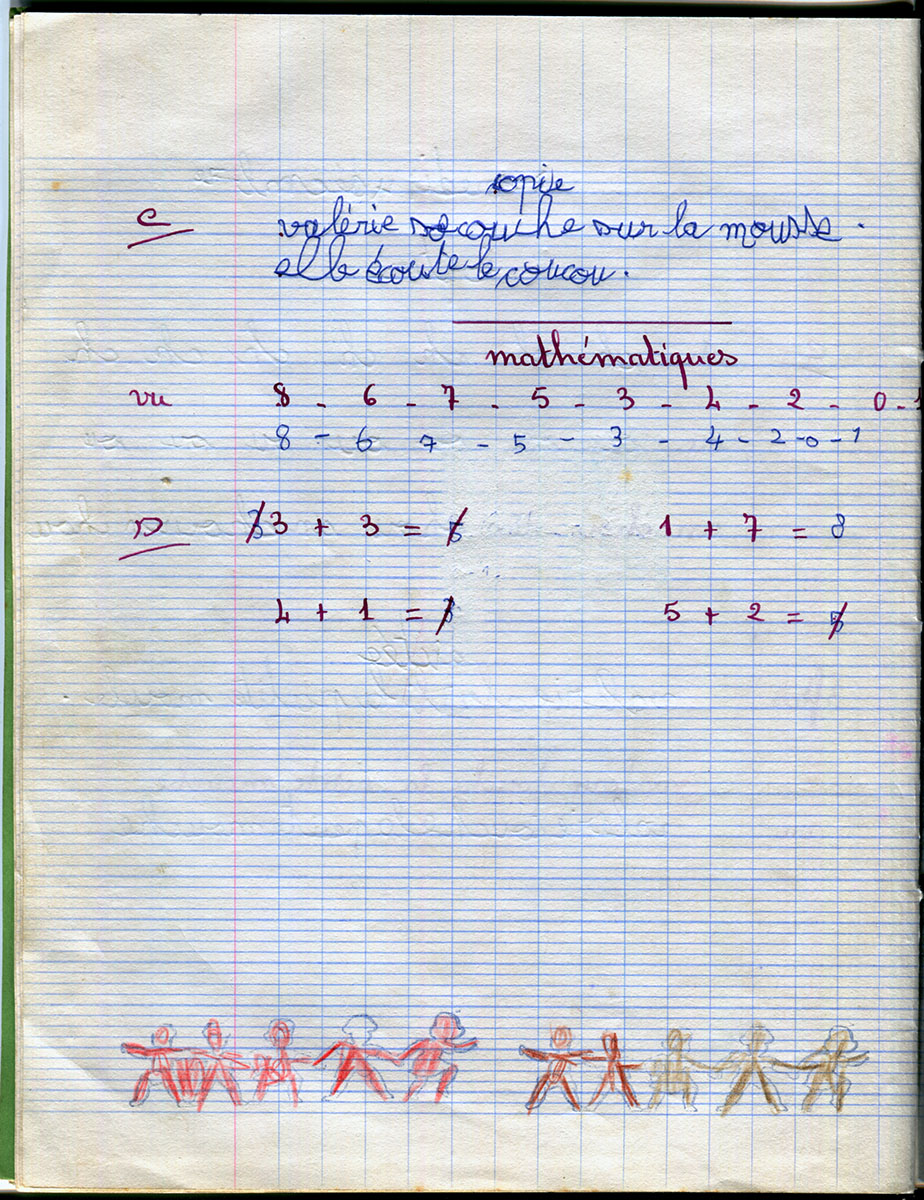 copie
C valérie se couche sur la mousse.
elle écoute le coucou.
mathématiques
vu 8 - 6 - 7 - 5 - 3 - 4 - 2 - 0 - 1
8 - 6 7 - 5 - 3 - 4 - 2 - 0 - 1
D 3 + 3 = 1 + 7 = 8
4 + 1 = 5 + 2 =